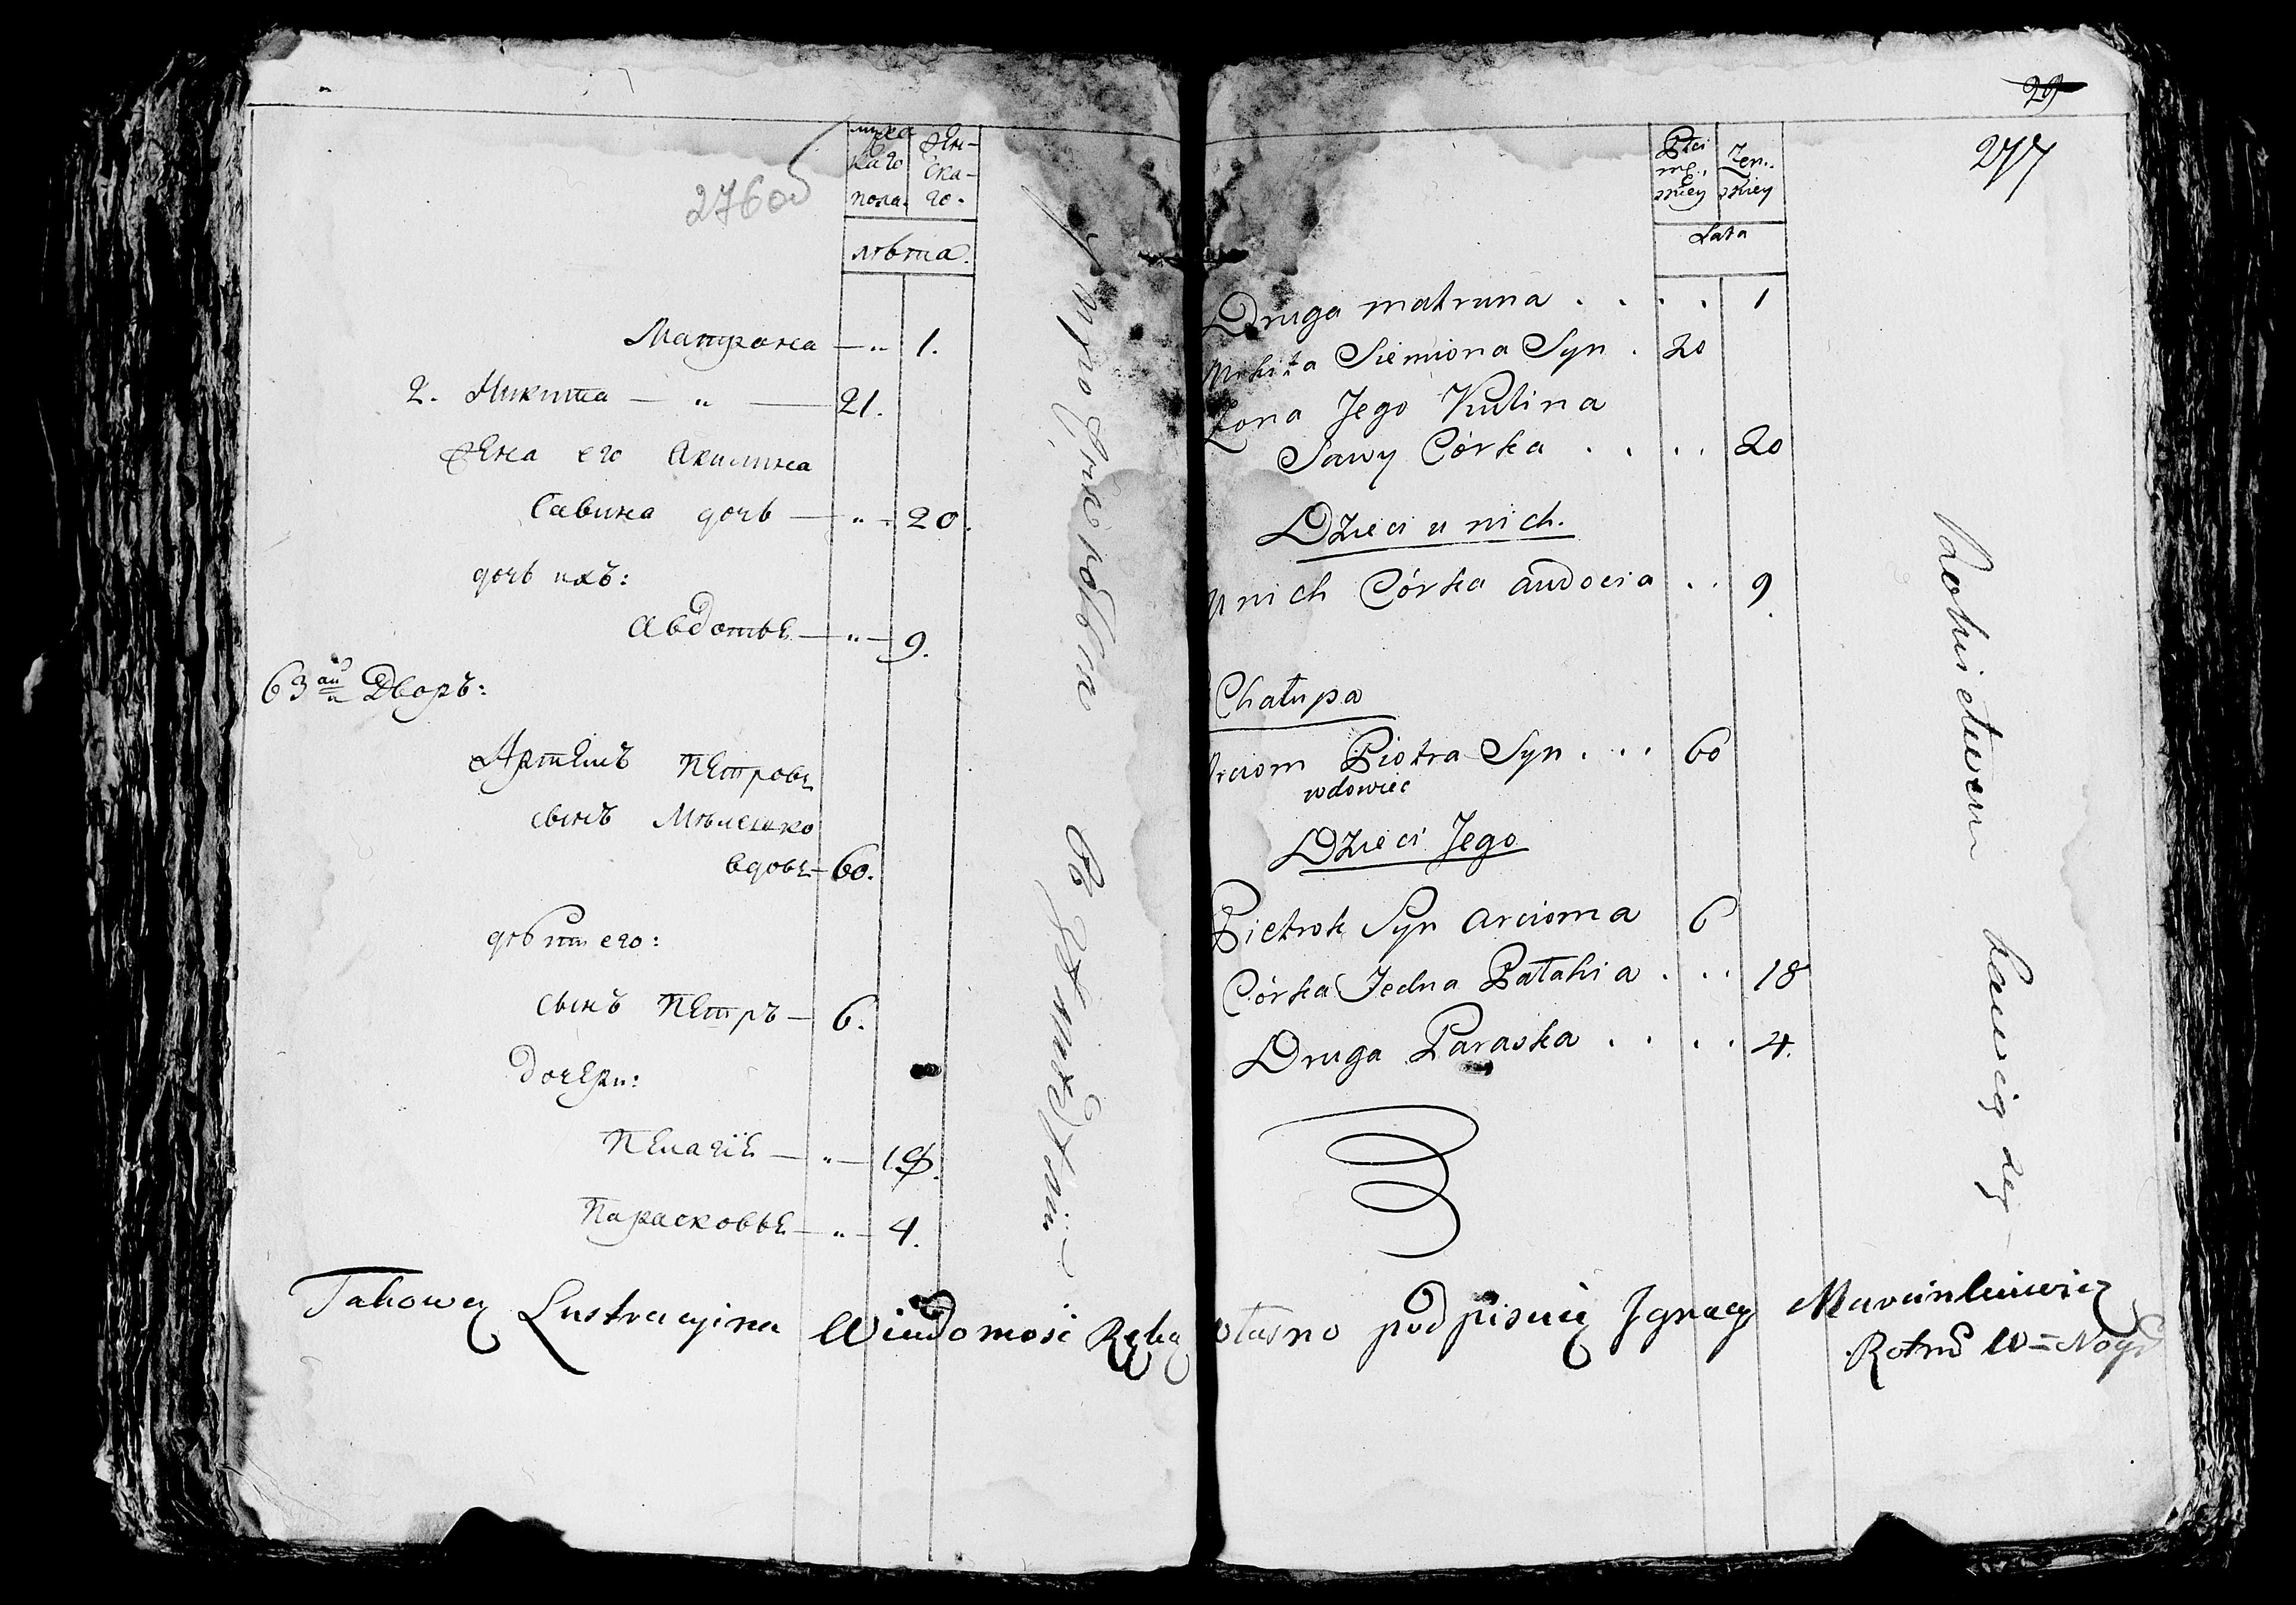 276об
мужескаго пола.
женскаго.
лѣта.
Матрона — „ — 1.
2. Никита — „ — 21.
Жена его Акилина
Савина дочь — „ — 20.
дочь ихъ:
Авдотья — „ — 9.
63ай Дворъ:
Артемъ Петровъ
сынъ
вдовъ — 60.
дѣти его:
сынъ Петръ — 6.
дочери:
Пелагія — „ — 18.
Парасковья — „ — 4.
29
277
Płci męzkiey
Zenskiey
Lata
Druga matruna . . . . 1
Mikita Siemiona Syn . 20
Zona Jego Kulina
Sawy Córka . . . . 20
Dzieci u nich.
U nich Córka audocia . . 9
Chałupa
Arciom Piotra Syn . . . 60
wdowiec
Dzieci Jego
Pietrok Syn arcioma 6
Córka Jedna Pałahia . . . 18
Druga Paraska . . . . 4.
Takową Lustracyiną Wiadomość Ręką własno podpisuię Jgnacy Marcinkiewicz
Rotm W=Nogr